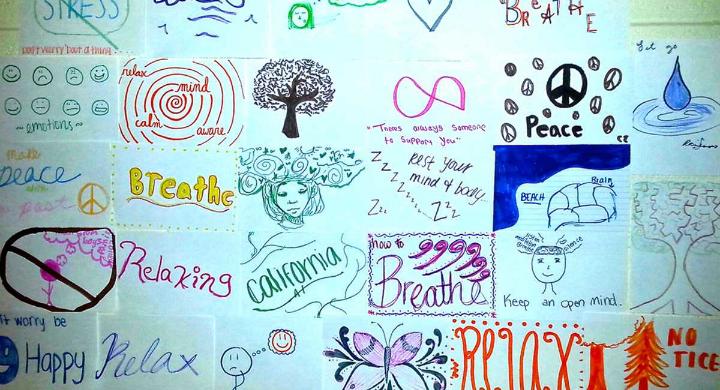 STRESS
Don't worry 'bout a thing
BREATHE
~emotions~
relax
mind
calm
aware
"Theres always someone
to support you"
Peace
Let go
make
peace
with
past
BREathe
Zz
Z
Z
Z
Z
Z
Zz
Zz
Rest your
mind & body
BEACH
Brain
Relaxing
California
how to
Breathe
silence
Keep an open mind.
worry be
Happy
Relax
RELAX
NO
TICE